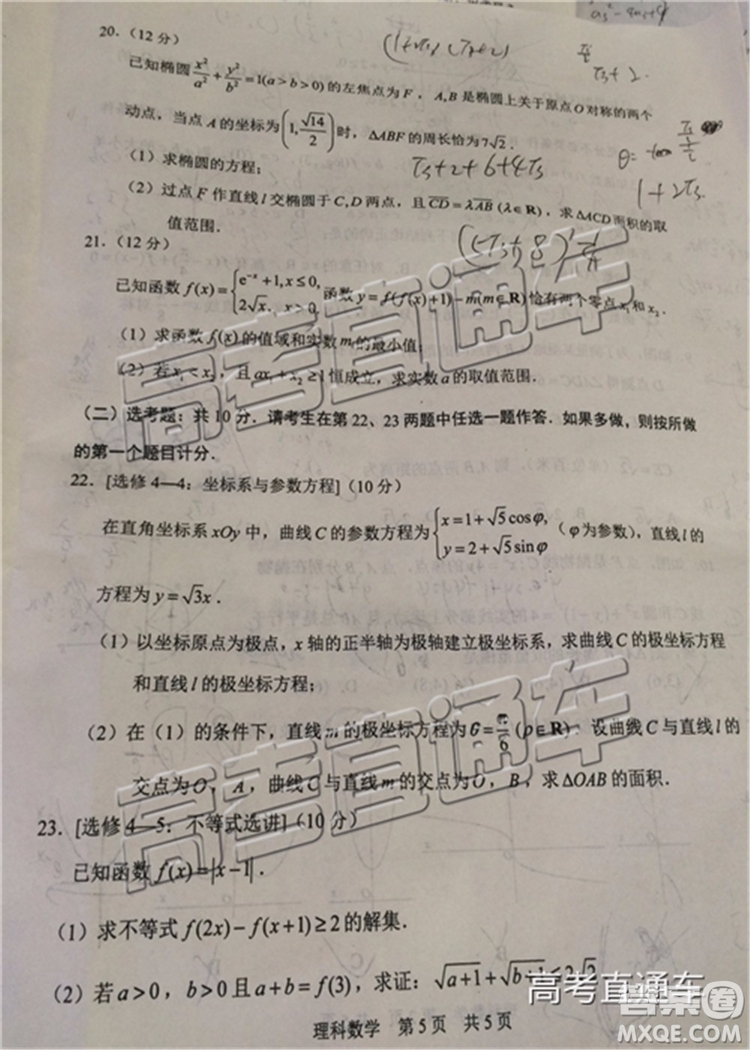 as²-4as+9
20.（12 分）
(1+√3)(√3+2)
√3+2.
已知椭圆x²/a²+y²/b²=1(a>b>0)的左焦点为F，A,B是椭圆上关于原点O对称的两个
动点，当点A的坐标为(1,√14/2)时，△ABF的周长恰为7√2．
（1）求椭圆的方程；
√3+2+6+4√3
1+2√3
（2）过点F作直线l交椭圆于C,D两点，且CD=λAB(λ∈R)，求△ACD面积的取
值范围．
21.（12 分）
已知函数f(x)={e⁻ˣ+1,x≤0, 2√x, x>0,函数y=f(f(x)+1)-m(m∈R)恰有两个零点x₁和x₂．
（1）求函数f(x)的值域和实数m的最小值；
（2）若x₁<x₂，且ax₁+x₂≥1恒成立，求实数a的取值范围．
（二）选考题：共10分．请考生在第22、23两题中任选一题作答．如果多做，则按所做
的第一个题目计分．
22.［选修4—4：坐标系与参数方程］（10分）
在直角坐标系xOy中，曲线C的参数方程为{x=1+√5cosφ, y=2+√5sinφ（φ为参数），直线l的
方程为y=√3x．
（1）以坐标原点为极点，x轴的正半轴为极轴建立极坐标系，求曲线C的极坐标方程
和直线l的极坐标方程；
（2）在（1）的条件下，直线m的极坐标方程为θ=π/6(ρ∈R)．设曲线C与直线l的
交点为O，A，曲线C与直线m的交点为O，B，求△OAB的面积．
23.［选修4—5：不等式选讲］（10分）
已知函数f(x)=|x-1|．
（1）求不等式f(2x)-f(x+1)≥2的解集．
（2）若a>0，b>0且a+b=f(3)，求证：√a+1+√b+1≤2√2
理科数学 第5页 共5页
高考直通车
高考直通车
高考直通车
答案圈
MXQE.COM